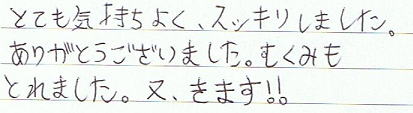 とても気持ちよく、スッキリしました。
ありがとうございました。むくみも
とれました。又、きます!!